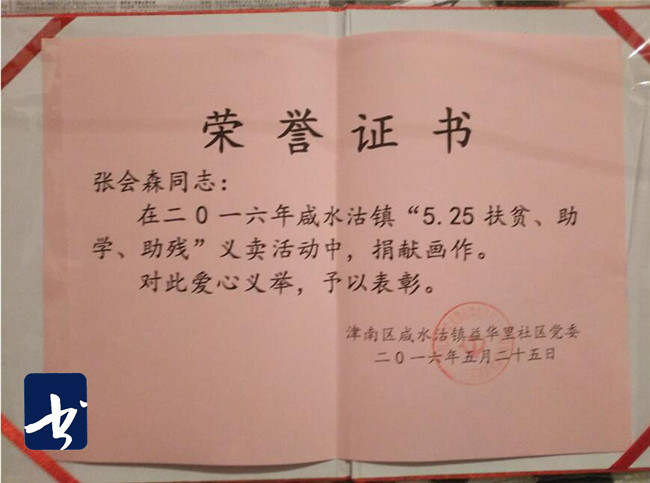 荣誉证书
张会森同志：
在二0一六年咸水沽镇“5.25扶贫、助
学、助残”义卖活动中，捐献画作。
对此爱心义举，予以表彰。
津南区咸水沽镇益华里社区党委
二0一六年五月二十五日